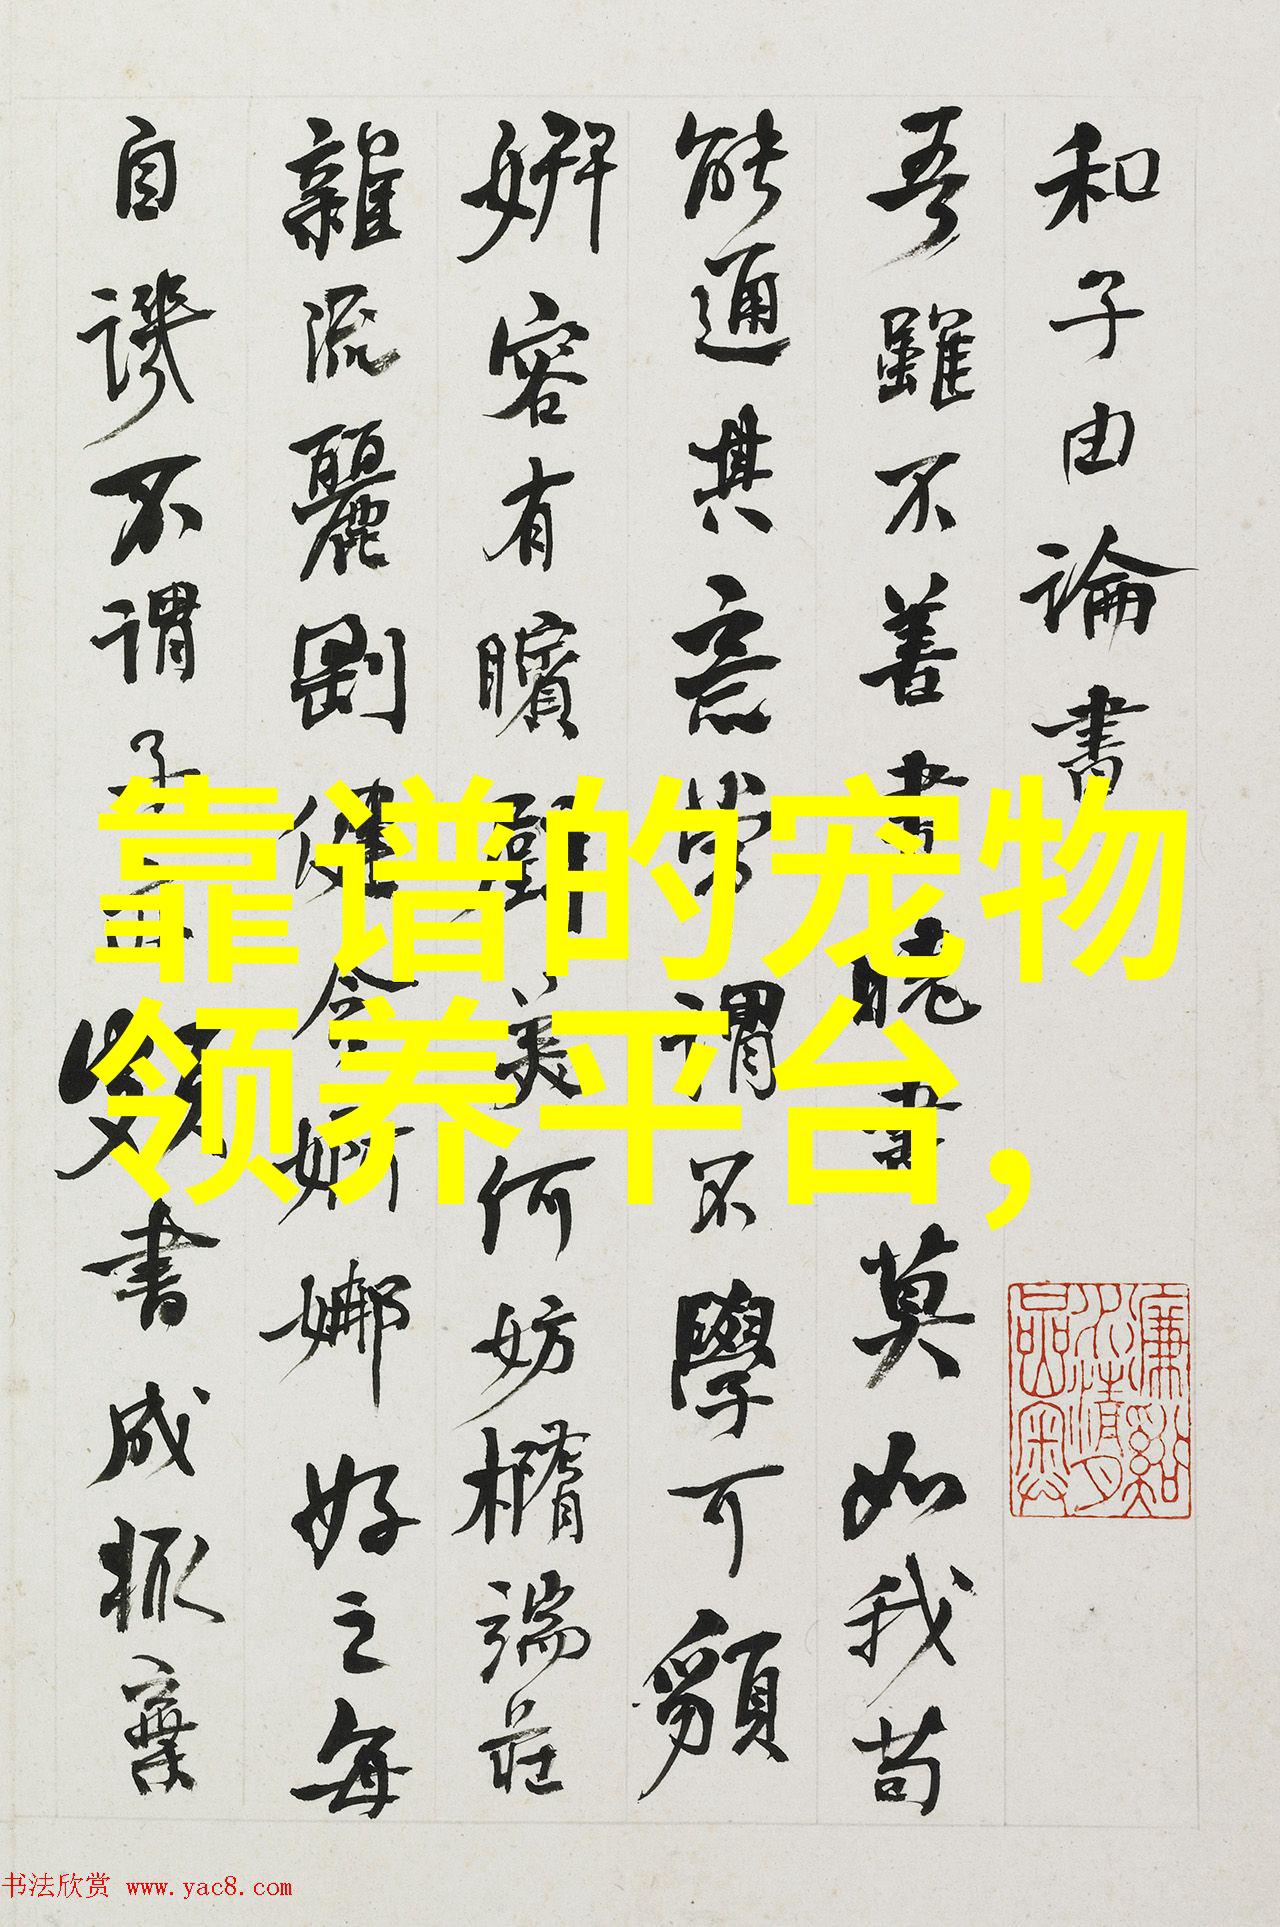 和子由論書
吾雖不善書曉書莫如我苟
能通其意常謂不學可貌
妍容有矉璧美何妨橢端莊
雜流麗剛健含婀娜好之每
自譏不謂子亦頗書成輒棄
靠谱的宠物
领养平台，
书法欣赏 www.yac8.com